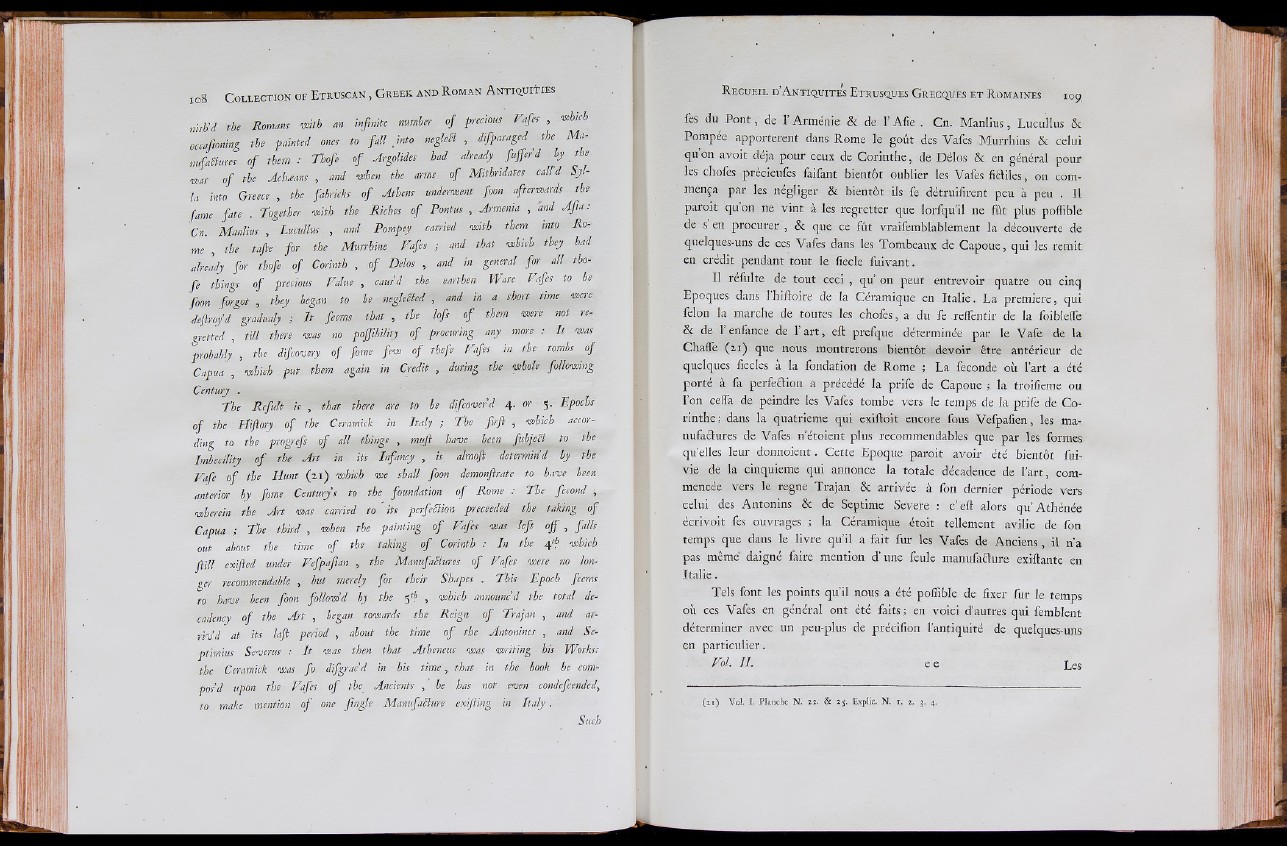 108 COLLECTION OF ETRUSCAN , GREEK AND ROMAN ANTIQUITIES
nish'd the Romans with an infinite number of precious Vases , which
occasioning the painted ones to fall into neglect , disparaged the Ma-
nufactures of them : Those of Argolides had already suffer'd by the
war of the Achæans , and when the arms of Mithridates call'd Syl-
la into Greece , the fabricks of Athens underwent soon afterwards the
same fate . Together with the Riches of Pontus , Armenia , and Asia :
Cn. Manlius , Lucullus , and Pompey carried with them into Ro-
me , the taste for the Murrhine Vases ; and that which they had
already for those of Corinth , of Delos , and in general for all tho-
se things of precious Value , caus'd the earthen Ware Vases to be
soon forgot , they began to be neglected , and in a short time were
destroy'd gradualy ; It seems that , the loss of them were not re-
gretted , till there was no possibility of procuring any more : It was
probably , the discovery of some few of these Vases in the tombs of
Capua , which put them again in Credit , during the whole following
Century .
The Result is , that there are to be discover'd 4. or 5. Epochs
of the History of the Ceramick in Italy ; The first , which accor-
ding to the progress of all things , must have been subject to the
Imbecillity of the Art in its Infancy , is almost determin'd by the
Vase of the Hunt (21) which we shall soon demonstrate to have been
anterior by some Century's to the foundation of Rome : The second ,
wherein the Art was carried to its perfection preceeded the taking of
Capua ; The third , when the painting of Vases was left off , falls
out about the time of the taking of Corinth : In the 4th which
still existed under Vespasian , the Manufactures of Vases were no lon-
ger recommendable , but merely for their Shapes . This Epoch seems
to have been soon follow'd by the 5th , which announc'd the total de-
cadency of the Art , began towards the Reign of Trajan , and ar-
riv'd at its last period , about the time of the Antonines , and Se-
ptimius Severus : It was then that Atheneus was writing his Works:
the Ceramick was so disgrac'd in his time , that in the book he com-
pos'd upon the Vases of the Ancients , he has not even condescended,
to make mention of one single Manufacture existing in Italy .
Such
RECUEIL D'ANTIQUITÉS ETRUSQUES GRECQUES ET ROMAINES 109
ses du Pont , de l'Arménie & de l'Asie . Cn. Manlius , Lucullus &
Pompée apporterent dans Rome le goût des Vases Murrhins & celui
qu'on avoit déja pour ceux de Corinthe , de Délos & en général pour
les choses précieuses faisant bientôt oublier les Vases fictiles , on com-
mença par les négliger & bientôt ils se détruisirent peu à peu . Il
paroit qu'on ne vint à les regretter que lorsqu'il ne fût plus possible
de s'en procurer , & que ce fût vraisemblablement la découverte de
quelques-uns de ces Vases dans les Tombeaux de Capoue , qui les remit
en crédit pendant tout le siecle suivant .
Il résulte de tout ceci , qu'on peut entrevoir quatre ou cinq
Epoques dans l'histoire de la Céramique en Italie . La premiere , qui
selon la marche de toutes les choses , a du se ressentir de la foiblesse
& de l'enfance de l'art , est presque déterminée par le Vase de la
Chasse (21) que nous montrerons bientôt devoir être antérieur de
quelques siecles à la fondation de Rome ; La seconde où l'art a été
porté à sa perfection a précédé la prise de Capoue ; la troisieme ou
l'on cessa de peindre les Vases tombe vers le temps de la prise de Co-
rinthe ; dans la quatrieme qui existoit encore sous Vespasien , les ma-
nufactures de Vases n'étoient plus recommendables que par les formes
qu'elles leur donnoient . Cette Epoque paroit avoir été bientôt sui-
vie de la cinquieme qui annonce la totale décadence de l'art , com-
mencée vers le regne Trajan & arrivée à son dernier période vers
celui des Antonins & de Septime Severe : c'est alors qu'Athénée
écrivoit ses ouvrages ; la Céramique étoit tellement avilie de son
temps que dans le livre qu'il a fait sur les Vases de Anciens , il n'a
pas même daigné faire mention d'une seule manufacture existante en
Italie .
Tels sont les points qu'il nous a été possible de fixer sur le temps
où ces Vases en général ont été faits ; en voici d'autres qui semblent
déterminer avec un peu-plus de précision l'antiquité de quelques-uns
en particulier .
Vol. II. e e Les
(21) Vol. I. Planche N. 22. & 23. Explic. N. 1. 2. 3. 4.